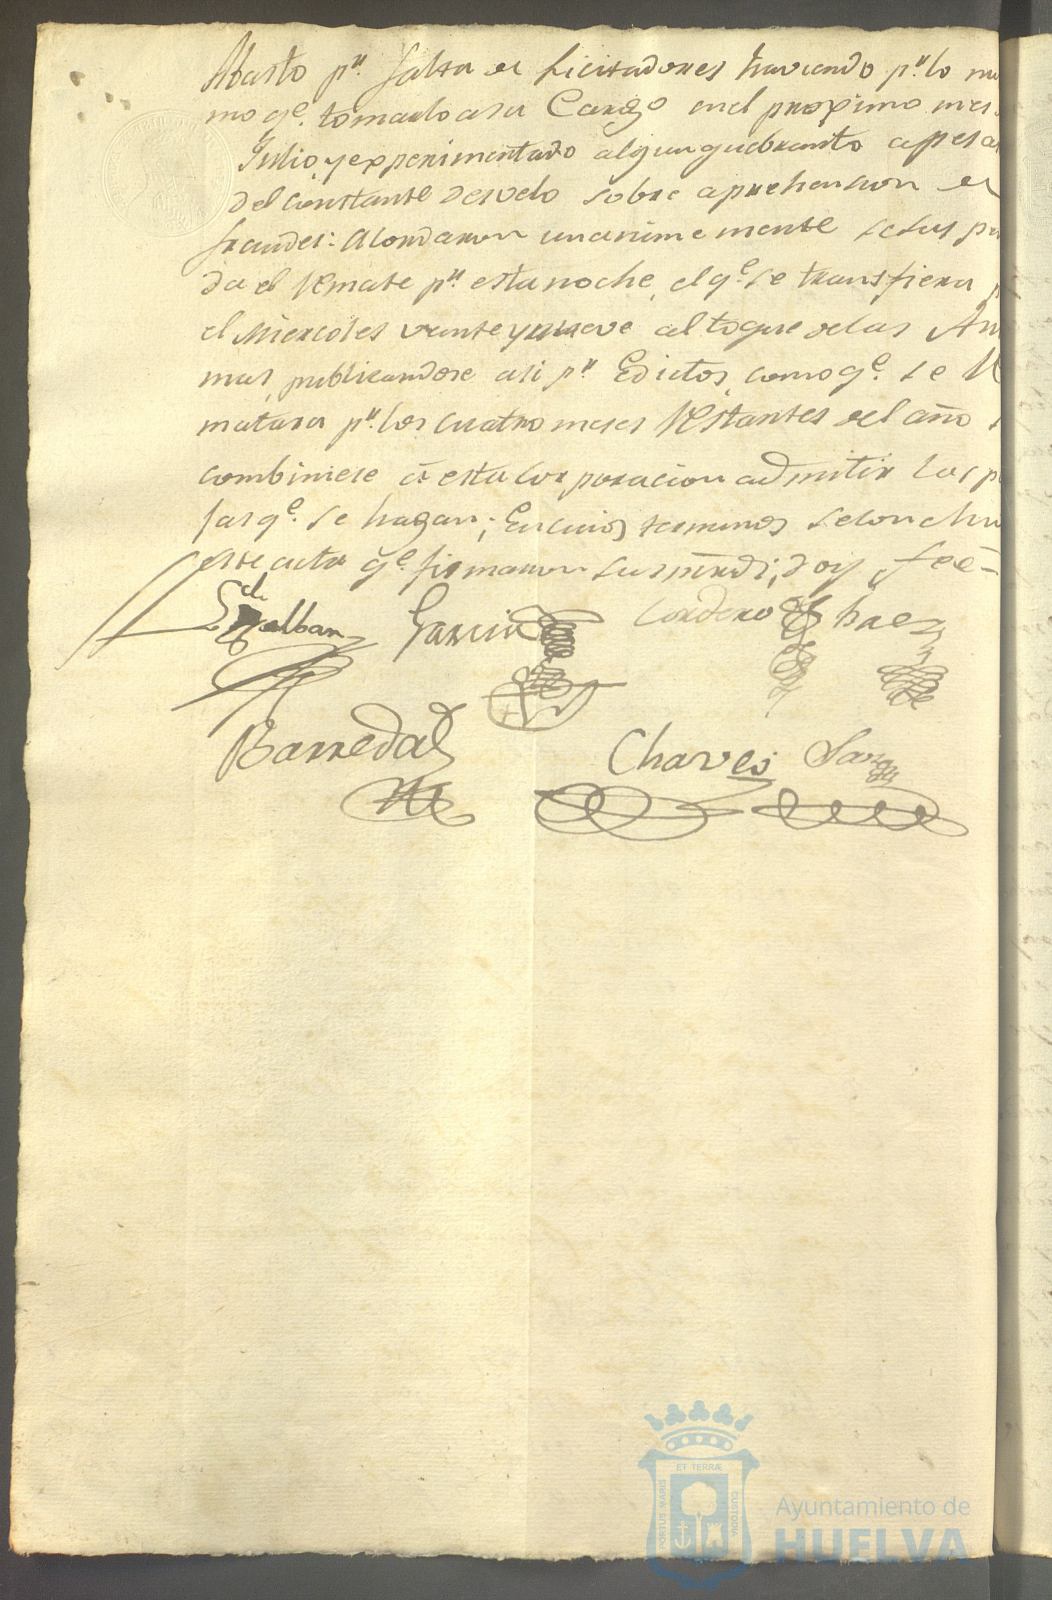 Abasto pr. falta de Licitadores haviendo pr. lo mi
mo qe. tomarlo a su Cargo en el proximo mes
Julio, y experimentado algun quebranto a pesar
del constante desvelo sobre aprehencion de
fraudes: Acordaron unanimemente se sus pen
da el Remate pr. esta noche, el qe. se transfiera p
el Miercoles veinte y nueve al toque de las Ani
mas, publicandose asi pr. Edictos, como qe. se Re
matara pr. los cuatro meses Restantes del año s
combiniese á esta Corporacion admitir las pu
jas qe. se hagan; En cuios terminos se concluy
este acto qe. firmaron sus mrds; doy fee=
Garcia Cordero Baez
Barreda
Chaves
ET TERRÆ
PORTUS MARIS
CUSTODIA
Ayuntamiento de
HUELVA